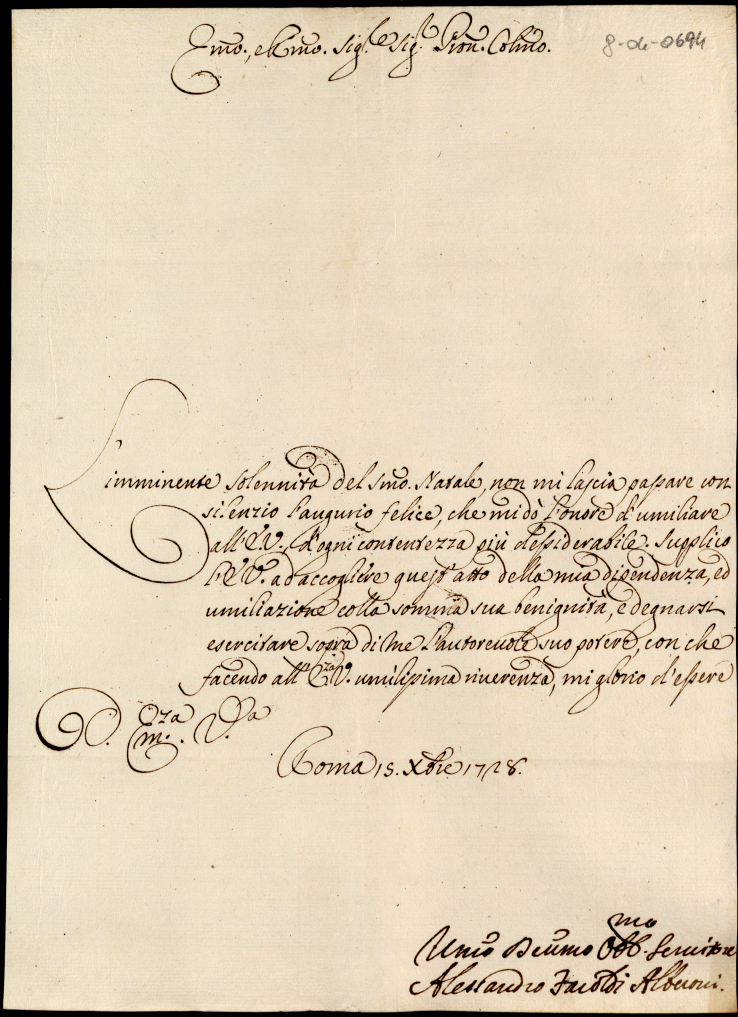 Emo., e Rmo. Sig.re Sig. Pron. Colmo.
8-04-0694
L'imminente solennità del Smo. Natale, non mi lascia passare con
silenzio l'augurio felice, che mi dò l'onore d'umiliare
all'E.V., d'ogni contentezza più dessiderabile. Supplico
l'E.V. ad accogliere quest'atto della mia dipendenza, ed
umiliazione colla somma sua benignità, e degnarsi
esercitare sopra di me l'autorevole suo potere, con che
facendo all'Eza V. umilissima riverenza, mi glorio d'essere
D. Eza V.ra
Em.
Roma 15. Xbre 1728.
Umo Deumo Obb.mo Servitore
Alessandro Alberoni.